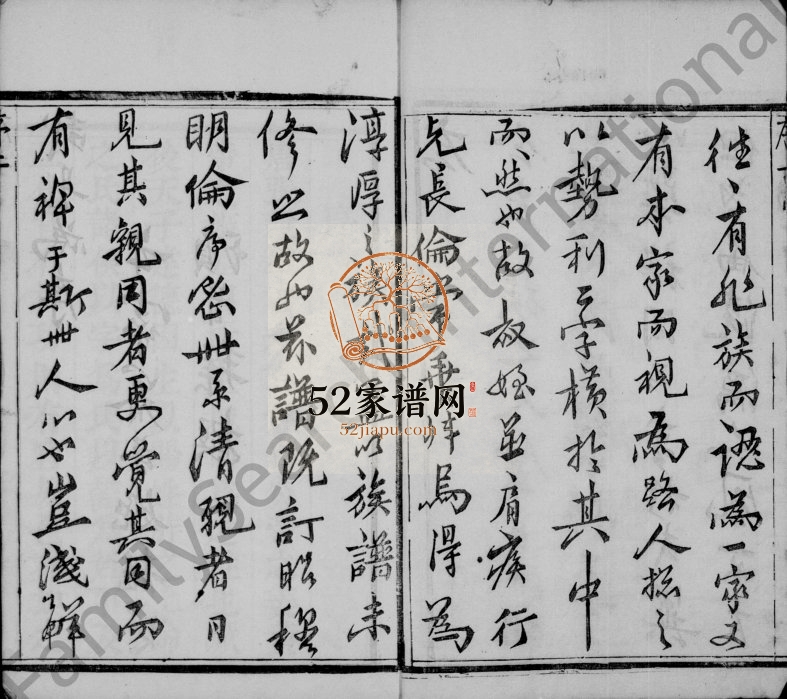 往〻有非族而認為一家又
有本家而視為路人揔之
以勢利二字横扵其中
而然也故叔姪並肩疾行
先長倫 烏得為
淳厚之族 以族譜未
修之故也茲譜既訂昭穆
明倫序定世系清親者日
見其親同者更覺其同而
有裨于斯世人心也豈淺鮮
52家谱网
52jiapu.com
FamilySearch International